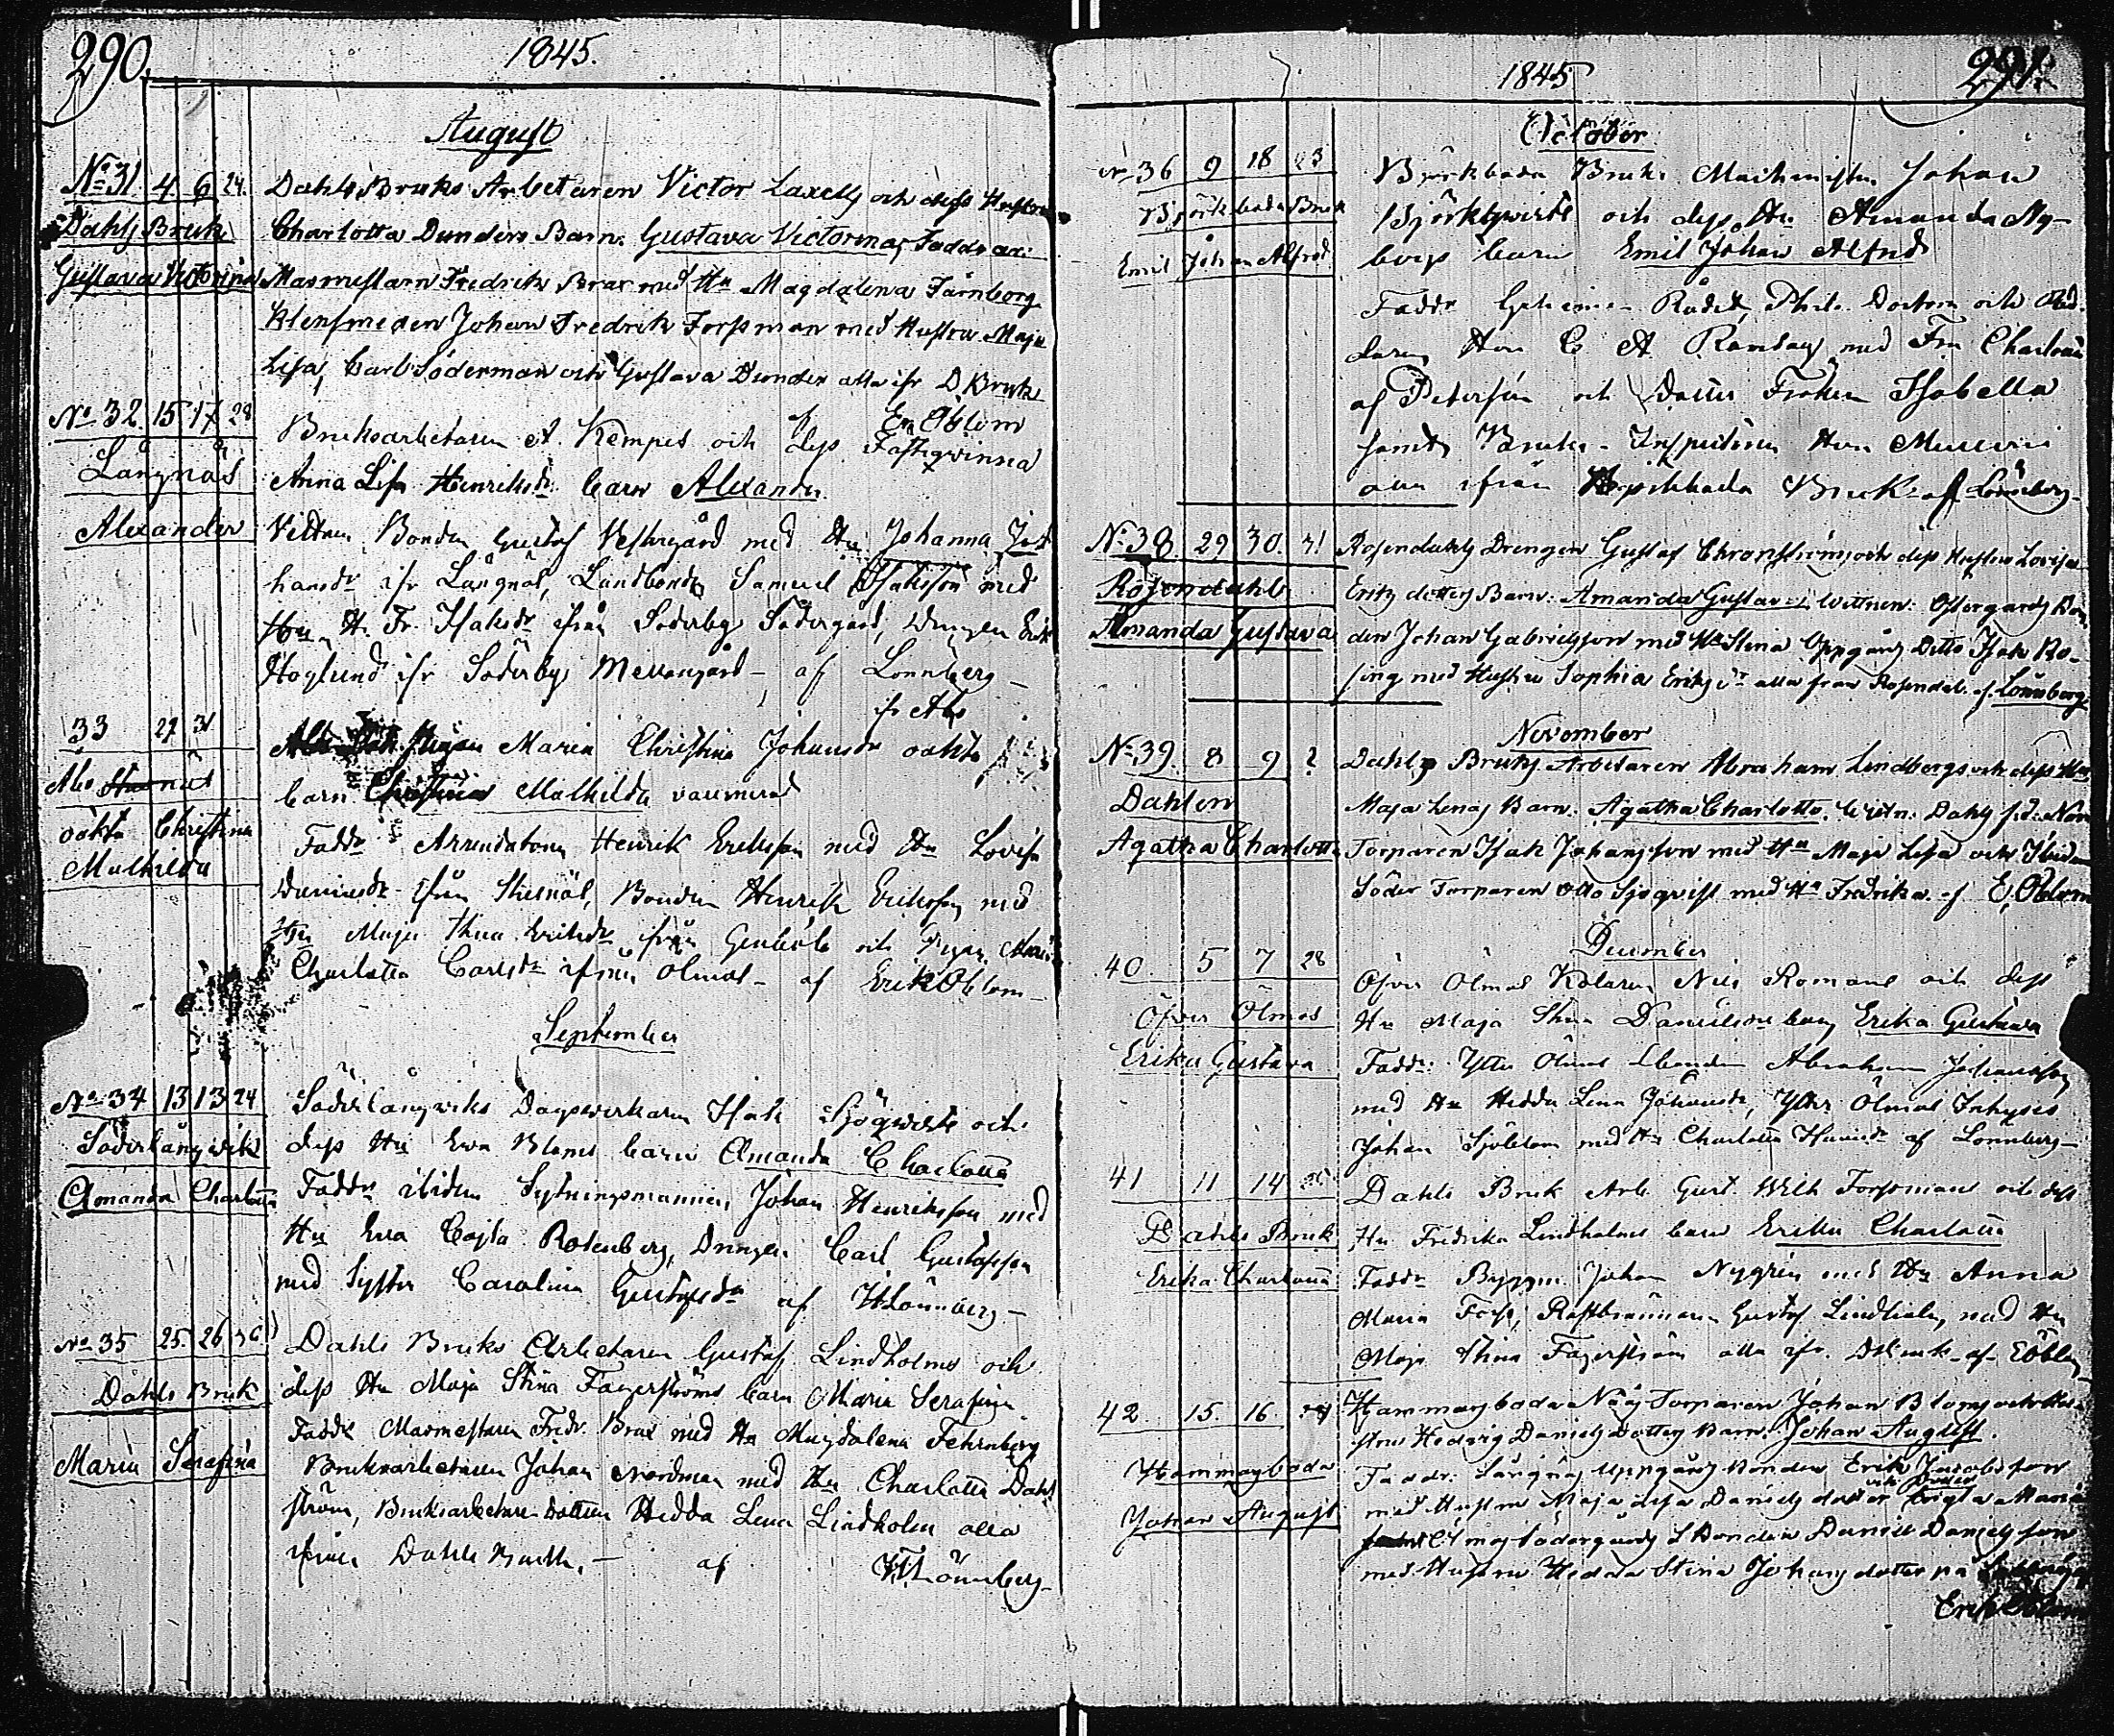 290.
1845.
August
No 31 4 6 24.
Dahls Bruk
Gustava Victorina
Dahls Bruks Arbetaren Victor Laxells och dess Hustru
Charlotta Dunders Barn: Gustava Victorina, Faddrar:
Masmestarn Fredrik Brax med Hu Magdalena Färnborg
Klensmeden Johan Fredrik Forssman med Hustru Maja
Lisa, Carl Söderman och Gustava Dunder alla ifr D. Bruk
E. Öblom
No 32. 15 17 28
Långnäs
Alexander
Bruksarbetaren A. Kempes och dess Fästeqvinna
Anna Lisa Henriksdr barn Alexander
Vittnen Bonden Gustaf Vestergård med Hu Johanna Jo-
hansdr ifr Långnäs, Landbonden Samuel Isaksson med
Hu H. Fr. Isaksdr ifrån Söderby Södergård, Drengen Erik
Höglund ifr Söderby Mellangård - af Lönnberg -
33 27 31
Åbo
oäkta Christina
Mathilda
ifr Åbo
Pigan Maria Christina Johansdr oäkta
barn Christina Mathilda
Faddr Arrendatorn Henrik Eriksson med Hu Lovisa
Danielsdr ifrån Stusnäs, Bonden Henrik Eriksson med
Hu Maja Stina Eriksdr ifrån Genböle och Pigan Maria
Charlotta Carlsdr ifrån Ölmos - af Erik Öblom -
September
No 34 13 13 24
Söderlångvik
Amanda Charlotta
Söderlångviks Dagsverkaren Isak Sjöqvists och
dess Hu Eva Bloms barn Amanda Charlotta
Faddr ibidem Sytningsmannen Johan Henriksson med
Hu Eva Cajsa Rosenberg, Drengen Carl Gustafsson
med Syster Carolina Gustafsdr af Lönnberg -
No 35 25. 26
Dahls Bruk
Maria Serafina
Dahls Bruks Arbetaren Gustaf Lindholms och
dess Hu Maja Stina Fagerströms barn Maria Serafina
Faddr Masmestaren Fredr. Brax med Hu Magdalena Fehrnborg
Bruksarbetaren Johan Nordman med Hu Charlotta Dahl
ström, Bruksarbetare dottren Hedda Lena Lindholm alla
ifrån Dahls Bruk. - af Lönnberg
1845
291.
October
No 36 9 18 23
Björkboda Bruk
Emil Johan Alfred
Björkboda Bruks Machinisten Johan
Björkqvists och dess Hu Amanda Ny-
bergs barn Emil Johan Alfred
Faddr Geheime-Rådet, Phil. Doctorn och
Herr C A Ramsay med Fru Charlotta
af Petersén och Dotter Fröken Isabella
samt Bruks-Inspectoren Herr
alla ifrån Björkboda Bruk af Lönnberg
No 38. 29 30. 31
Rosendahl
Amanda Gustava
Rosendahls Drengen Gustaf Chronströms och dess Hustru Lovisa
Eriks dotters Barn: Amanda Gustava. Wittnen: Östergårds Bon-
den Johan Gabrielsson med Hu Stina Uppgårds Ditto Isak Ro-
sing med Hustru Sophia Eriks dr alla från Rosendal. af Lönnberg
November
No 39. 8 9 ?
Dahlen
Agatha Charlotta
Dahls Bruks Arbetaren Abraham Lindbergs och dess Hu
Maja Lenas Barn: Agatha Charlotta. Wittn: Dahls
Torparen Isak Johansson med Hu Maja Lisa och
Söder Torparen Otto Sjöqvist med Hu Fredrika. af E. Öblom
December
40. 5 7 28
Öfver Ölmos
Erika Gustava
Öfver Ölmos Kolaren Nils Romans och dess
Hu Maja Stina Danielsdrs barn Erika Gustava
Faddr: Ytter Ölmos Lbonden Abraham Johansson
med Hu Hedda Lena Johansdr, Ytter Ölmos Inhyses
Johan Sjöblom med Hu Charlotta af Lönnberg -
41 11 14
Dahls Bruk
Erika Charlotta
Dahls Bruk Arb Gust. Wilh Forssmans och dess
Hu Fredrika Lindholms barn Erika Charlotta
Faddr Byggm Johan Nygrén med Hu Anna
Maria Forss, Gustaf Lindholm, med Hu
Maja Stina Fagerström alla ifr. D Bruk af Eöblom
42 15. 16
Hammarsboda
Johan August
Hammarsboda Näs Torparen Johan Bloms och Hu-
strus Hedvig Daniels dotters Barn: Johan August.
Faddr: Långnäs Uppgårds Bonden Erik Jacobsson
med Hustru Maja Lisa Daniels dotter Maria
Ölmos Södergårds LBonden Daniel Danielsson
med Hustru Hedda Stina Johans dotter på
Erik Öblom